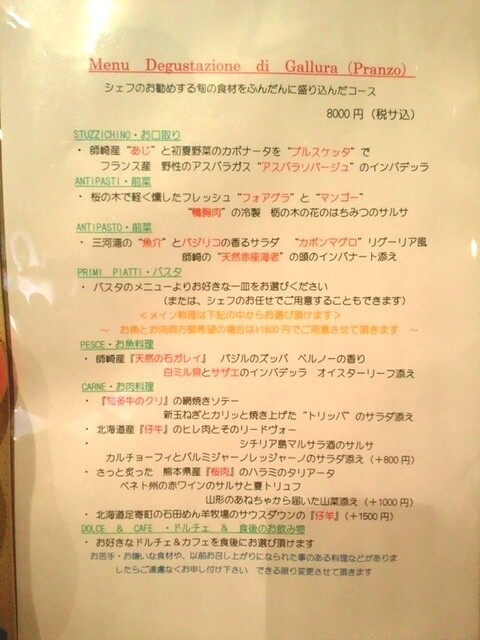 Menu Degustazione di Gallura (Pranzo)
シェフのお勧めする旬の食材をふんだんに盛り込んだコース
8000円（税サ込）
STUZZICHINO・お口取り
・ 師崎産 “あじ” と初夏野菜のカポナータを “ブルスケッタ” で
フランス産 野性のアスパラガス “アスパラソバージュ” のインバデッラ
ANTIPASTI・前菜
・ 桜の木で軽く燻したフレッシュ “フォアグラ” と “マンゴー”
“鴨胸肉” の冷製 栃の木の花のはちみつのサルサ
ANTIPASTO・前菜
・ 三河湾の “魚介” とバジリコの香るサラダ “カポンマグロ” リグーリア風
師崎の “天然赤座海老” の頭のインパナート添え
PRIMI PIATTI・パスタ
・ パスタのメニューよりお好きな一皿をお選びください
（または、シェフのお任せでご用意することもできます）
＜メイン料理は下記の中からお選び頂けます＞
～ お魚とお肉両方御希望の場合は+1800円でご用意させて頂きます ～
PESCE・お魚料理
・ 師崎産『天然の石ガレイ』 バジルのズッパ ペルノーの香り
白ミル貝とサザエのインバデッラ オイスターリーフ添え
CARNE・お肉料理
・ 『知多牛のクリ』の網焼きソテー
新玉ねぎとカリッと焼き上げた “トリッパ” のサラダ添え
・ 北海道産『仔牛』のヒレ肉とそのリードヴォー
・ シチリア島マルサラ酒のサルサ
カルチョーフィとパルミジャーノレッジャーノのサラダ添え（＋800円）
・ さっと炙った 熊本県産『桜肉』のハラミのタリアータ
ベネト州の赤ワインのサルサと夏トリュフ
山形のあねちゃから届いた山菜添え（＋1000円）
・ 北海道足寄町の石田めん羊牧場のサウスダウンの『仔羊』（＋1500円）
DOLCE & CAFE ・ドルチェ & 食後のお飲み物
・ お好きなドルチェ＆カフェを食後にお選び頂けます
お苦手・お嫌いな食材や、以前お召し上がりになられた事のある料理などがありま
したらご遠慮なくお申し付け下さい できる限り変更させて頂きます